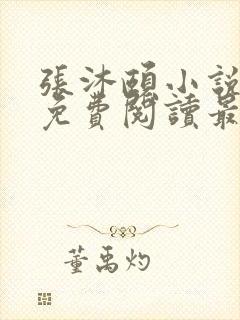 張沐頤小說
免費閱讀最
董禹灼